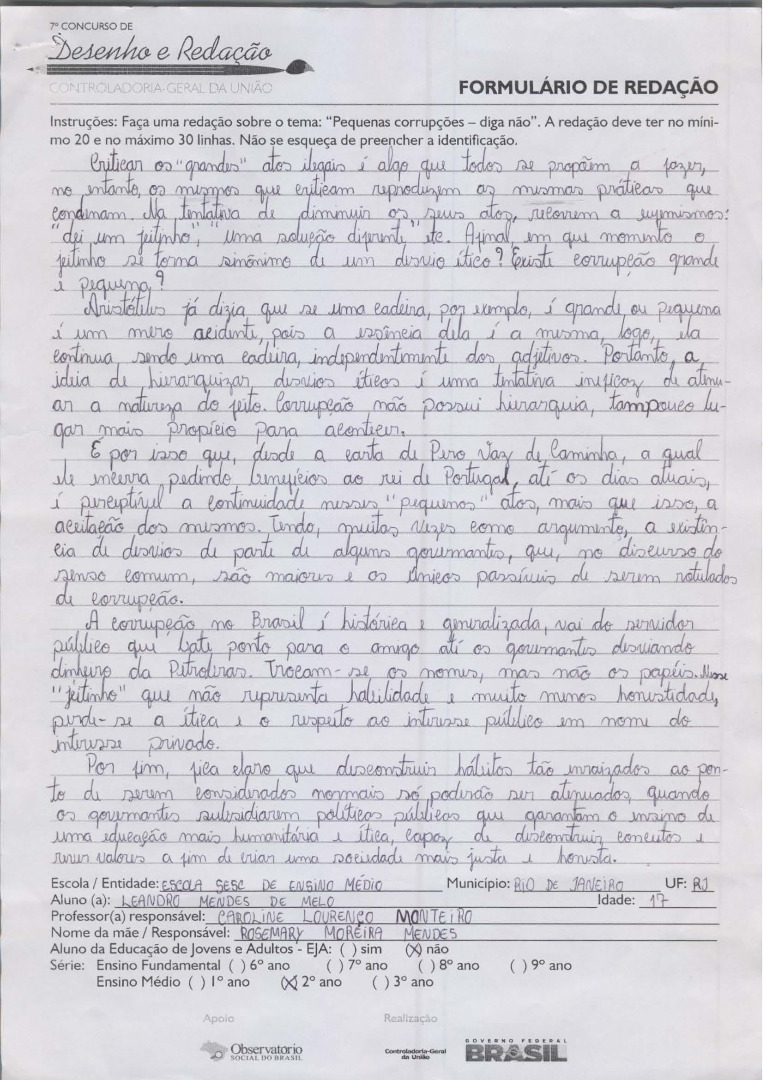 7º CONCURSO DE
Desenho e Redação
CONTROLADORIA-GERAL DA UNIÃO
FORMULÁRIO DE REDAÇÃO
Instruções: Faça uma redação sobre o tema: “Pequenas corrupções – diga não”. A redação deve ter no míni-
mo 20 e no máximo 30 linhas. Não se esqueça de preencher a identificação.
Criticar os "grandes" atos ilegais é algo que todos se propõem a fazer,
no entanto, os mesmos que criticam reproduzem as mesmas práticas que
condenam. Na tentativa de diminuir os seus atos, recorrem a eufemismos:
"dei um jeitinho", "uma solução diferente" etc. Afinal em que momento o
jeitinho se torna sinônimo de um desvio ético? Existe corrupção grande
e pequena?
Aristóteles já dizia que se uma cadeira, por exemplo, é grande ou pequena
é um mero acidente, pois a essência dela é a mesma, logo, ela
continua sendo uma cadeira, independentemente dos adjetivos. Portanto, a
ideia de hierarquizar desvios éticos é uma tentativa ineficaz de atenu-
ar a natureza do feito. Corrupção não possui hierarquia, tampouco lu-
gar mais propício para acontecer.
É por isso que, desde a carta de Pero Vaz de Caminha, a qual
ele encerra pedindo benefícios ao rei de Portugal, até os dias atuais,
é perceptível a continuidade nesses "pequenos" atos, mais que isso, a
aceitação dos mesmos. Tendo, muitas vezes como argumento, a existên-
cia de desvios de parte de alguns governantes, que, no discurso do
senso comum, são maiores e os únicos passíveis de serem rotulados
de corrupção.
A corrupção no Brasil é histórica e generalizada, vai do servidor
público que bate ponto para o amigo até os governantes desviando
dinheiro da Petrobras. Trocam-se os nomes, mas não os papéis. Nesse
"jeitinho" que não representa habilidade e muito menos honestidade,
perde-se a ética e o respeito ao interesse público em nome do
interesse privado.
Por fim, fica claro que desconstruir hábitos tão enraizados ao pon-
to de serem considerados normais só poderão ser atenuados, quando
os governantes subsidiarem políticas públicas que garantam o ensino de
uma educação mais humanitária e ética, capaz de desconstruir conceitos e
rever valores a fim de criar uma sociedade mais justa e honesta.
Escola / Entidade: ESCOLA SESC DE ENSINO MÉDIO Município: RIO DE JANEIRO UF: RJ
Aluno (a): LEANDRO MENDES DE MELO Idade: 17
Professor(a) responsável: CAROLINE LOURENÇO MONTEIRO
Nome da mãe / Responsável: ROSEMARY MOREIRA MENDES
Aluno da Educação de Jovens e Adultos - EJA: ( ) sim (X) não
Série: Ensino Fundamental ( ) 6º ano ( ) 7º ano ( ) 8º ano ( ) 9º ano
Ensino Médio ( ) 1º ano (X) 2º ano ( ) 3º ano
Apoio Realização
Observatório SOCIAL DO BRASIL
Controladoria-Geral da União
GOVERNO FEDERAL
BRASIL